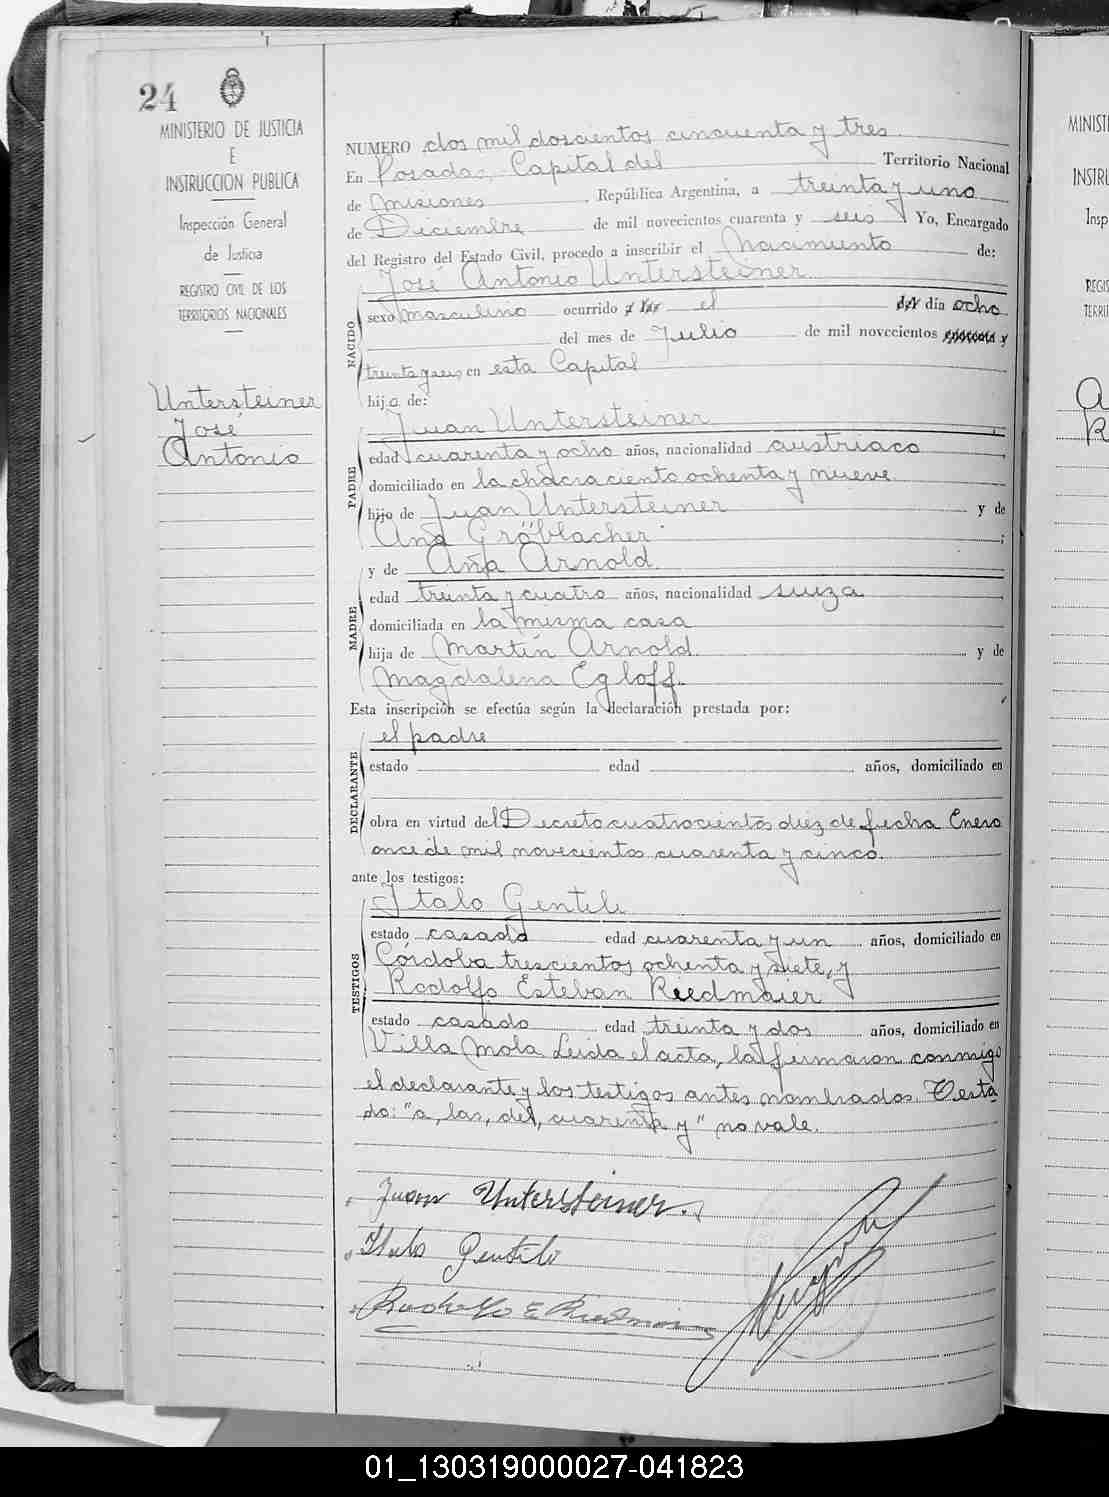 24
MINISTERIO DE JUSTICIA
E
INSTRUCCION PUBLICA
Inspección General
de Justicia
REGISTRO CIVIL DE LOS
TERRITORIOS NACIONALES
Untersteiner
José
Antonio
NUMERO dos mil doscientos cincuenta y tres
En Posadas, Capital del Territorio Nacional
de Misiones, República Argentina, a treinta y uno
de Diciembre de mil novecientos cuarenta y seis Yo, Encargado
del Registro del Estado Civil, procedo a inscribir el Nacimiento de:
José Antonio Untersteiner
NACIDO
sexo masculino ocurrido a las el del día ocho
del mes de Julio de mil novecientos cuarenta y
treinta y seis en esta Capital
hijo de:
Juan Untersteiner
PADRE
edad cuarenta y ocho años, nacionalidad austriaco
domiciliado en la chacra ciento ochenta y nueve
hijo de Juan Untersteiner y de
Ana Gröblacher ;
y de Ana Arnold
MADRE
edad treinta y cuatro años, nacionalidad suiza
domiciliada en la misma casa
hija de Martín Arnold y de
Magdalena Egloff.
Esta inscripción se efectúa según la declaración prestada por:
el padre
DECLARANTE
estado edad años, domiciliado en
obra en virtud del Decreto cuatrocientos diez de fecha Enero
once de mil novecientos cuarenta y cinco.
ante los testigos:
Italo Gentile
TESTIGOS
estado casado edad cuarenta y un años, domiciliado en
Córdoba trescientos ochenta y siete, y
Rodolfo Esteban Riedmaier
estado casado edad treinta y dos años, domiciliado en
Villa Mola Leída el acta, la firmaron conmigo
el declarante y los testigos antes nombrados. Testa
do: "a, las, del, cuarenta y" no vale.
Juan Untersteiner.
Italo Gentile
Rodolfo E Riedmaier
MINIST
INSTRU
Insp
REGIS
TERRI
01_130319000027-041823